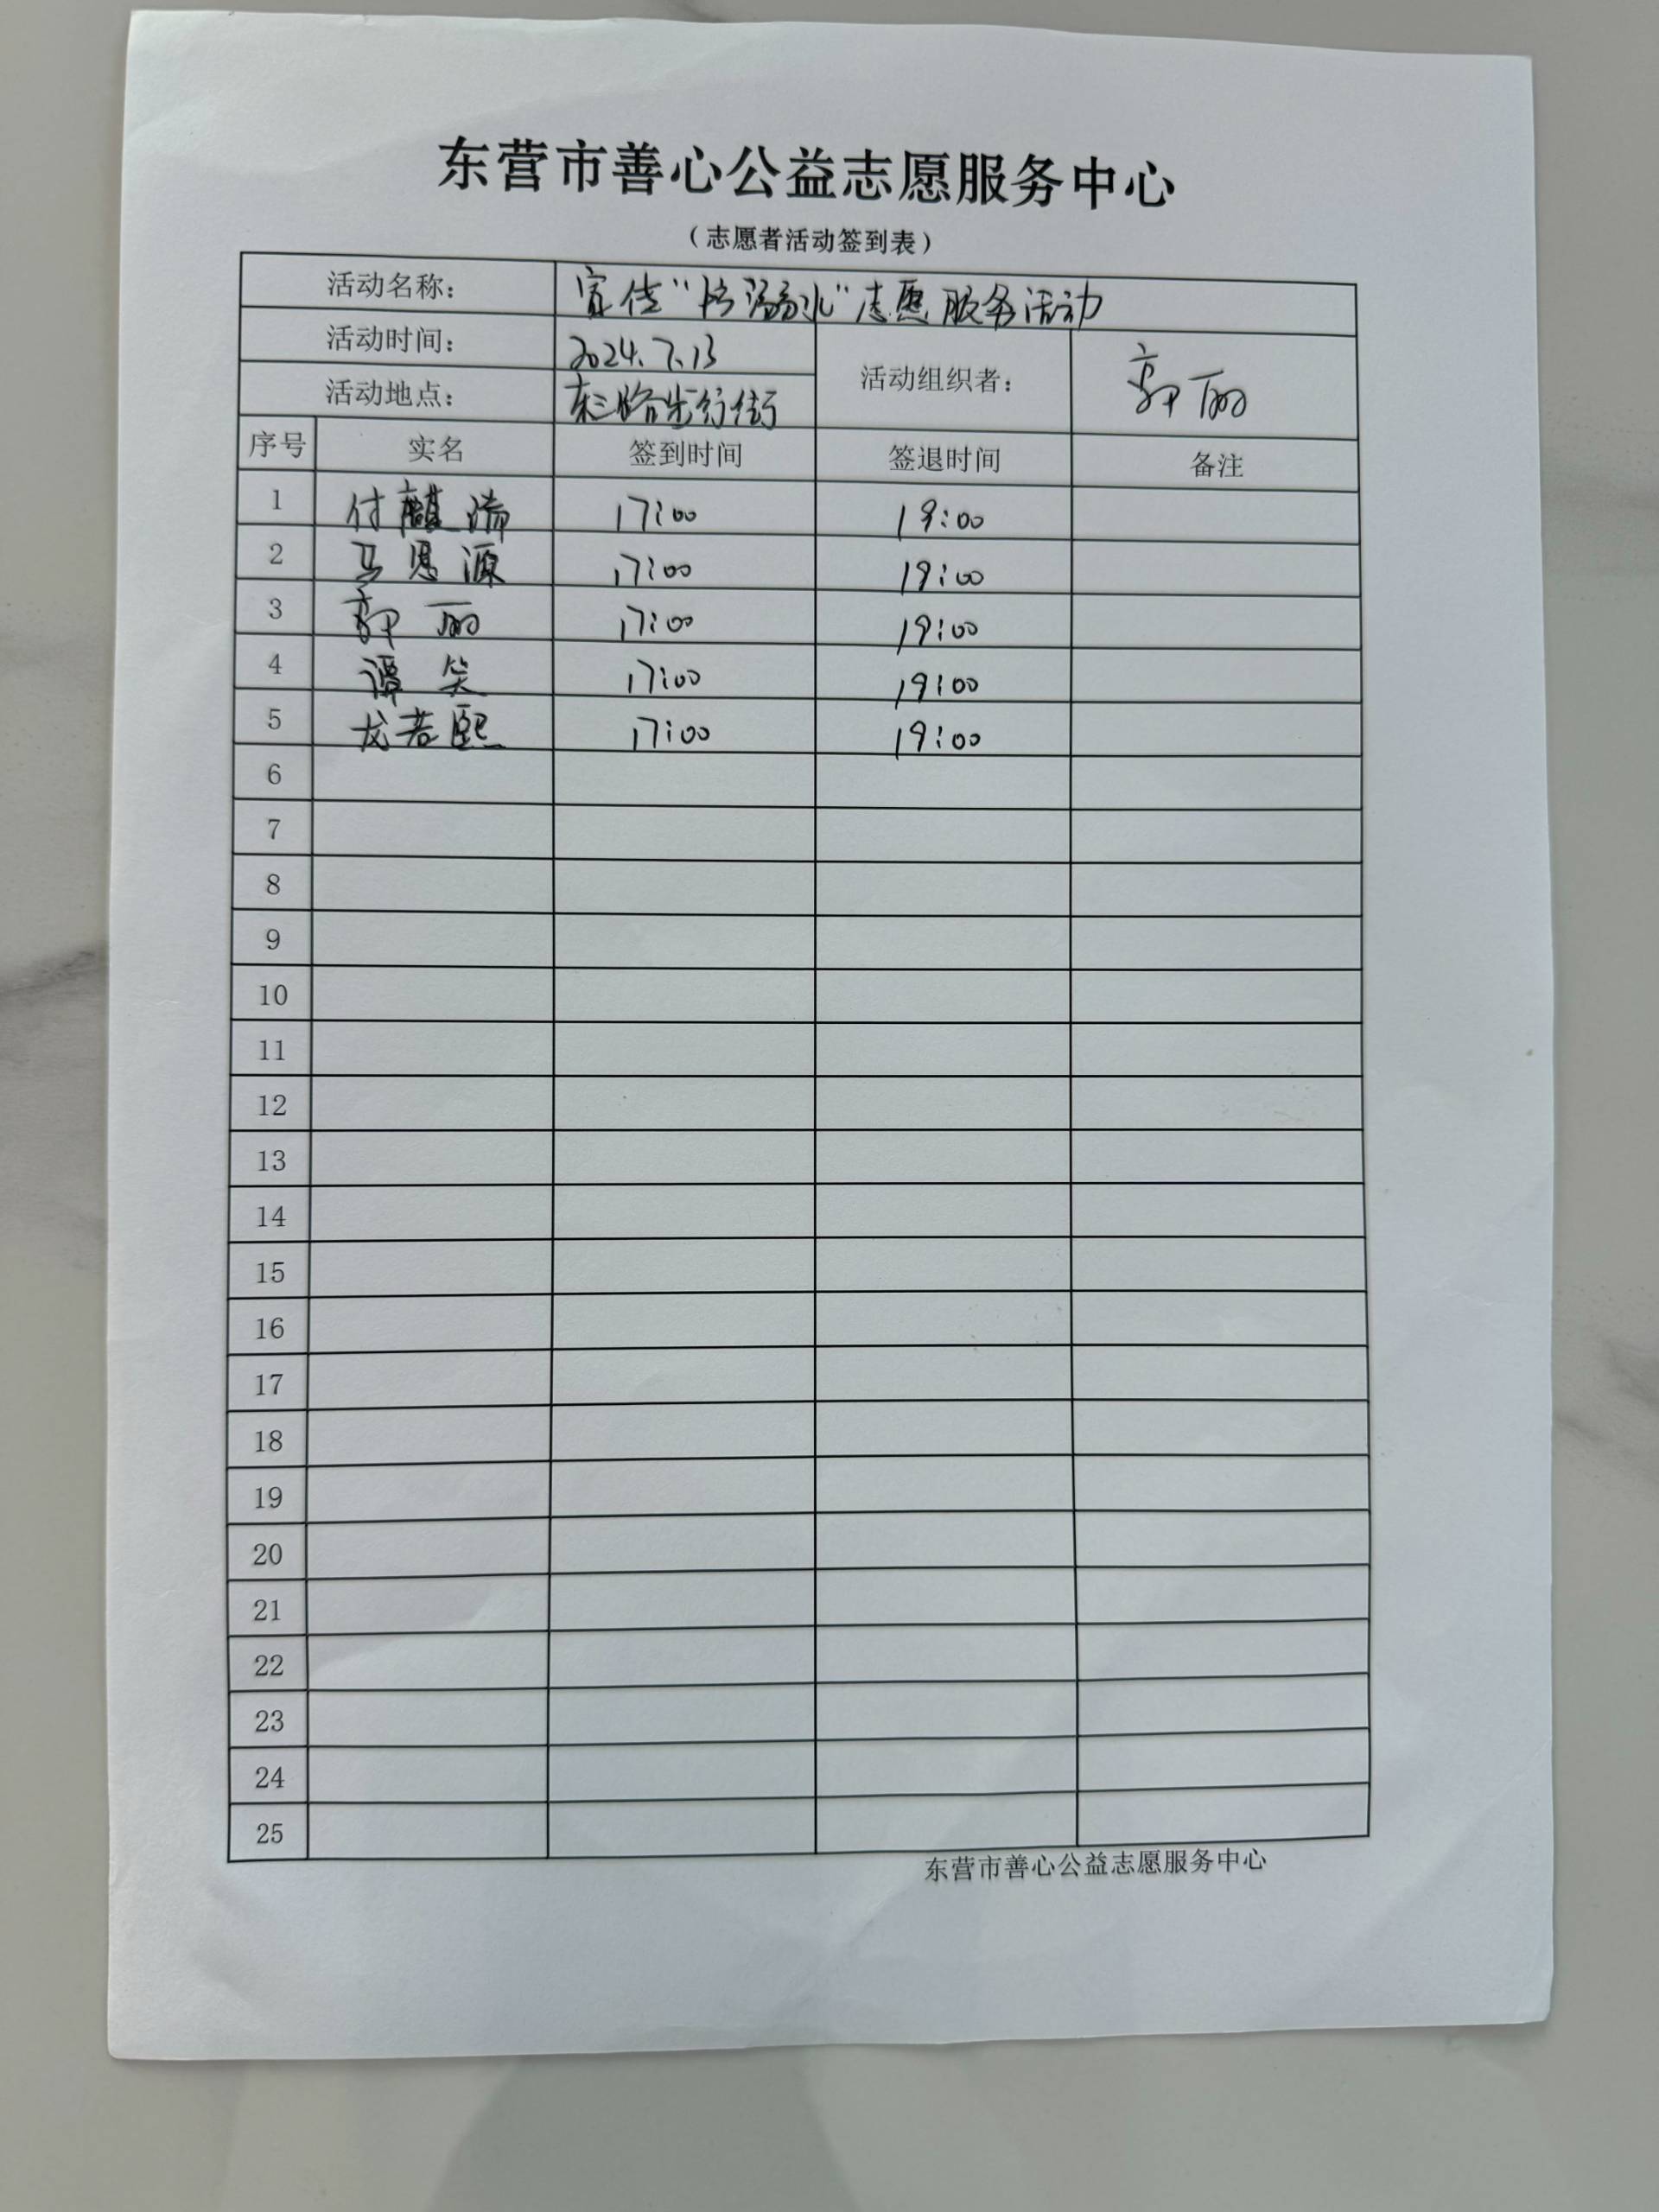 东营市善心公益志愿服务中心
（志愿者活动签到表）
活动名称： 宣传“防溺水”志愿服务活动
活动时间： 2024.7.13
活动组织者： 郭丽
活动地点： 东三路步行街
序号 实名 签到时间 签退时间 备注
1 付麒 17:00 19:00
2 马恩源 17:00 19:00
3 郭丽 17:00 19:00
4 谭笑 17:00 19:00
5 龙若熙 17:00 19:00
6
7
8
9
10
11
12
13
14
15
16
17
18
19
20
21
22
23
24
25
东营市善心公益志愿服务中心